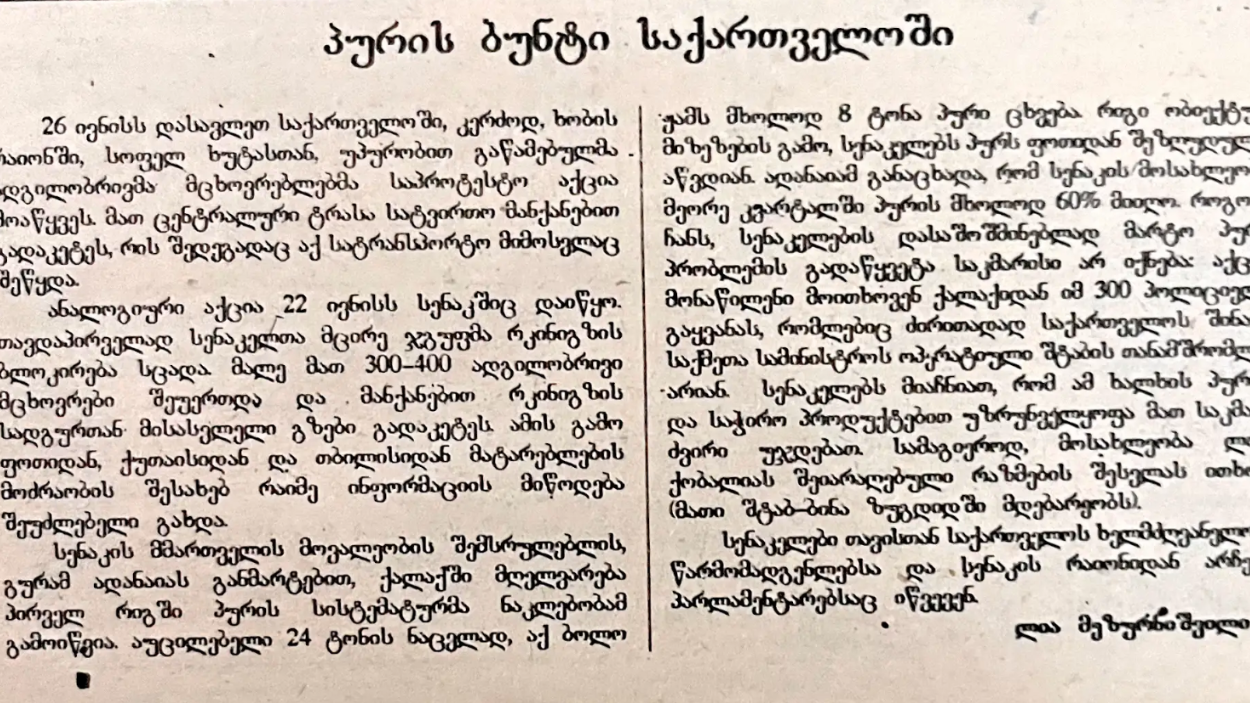 პურის ბუნტი საქართველოში
26 ივნისს დასავლეთ საქართველოში, კერძოდ, ხობის
რაიონში, სოფელ ხუტასთან, უპურობით გაწამებულმა
ადგილობრივმა მცხოვრებლებმა საპროტესტო აქცია
მოაწყვეს. მათ ცენტრალური ტრასა სატვირთო მანქანებით
გადაკეტეს, რის შედეგადაც აქ სატრანსპორტო მიმოსვლაც
შეწყდა.
ანალოგიური აქცია 22 ივნისს სენაკშიც დაიწყო.
თავდაპირველად სენაკელთა მცირე ჯგუფმა რკინიგზის
ბლოკირება სცადა. მალე მათ 300–400 ადგილობრივი
მცხოვრები შეუერთდა და მანქანებით რკინიგზის
სადგურთან მისასვლელი გზები გადაკეტეს. ამის გამო
ფოთიდან, ქუთაისიდან და თბილისიდან მატარებლების
მოძრაობის შესახებ რაიმე ინფორმაციის მიწოდება
შეუძლებელი გახდა.
სენაკის მმართველის მოვალეობის შემსრულებლის,
გურამ ადანაიას განმარტებით, ქალაქში მღელვარება
პირველ რიგში პურის სისტემატურმა ნაკლებობამ
გამოიწვია. აუცილებელი 24 ტონის ნაცვლად, აქ ბოლო
ჟამს მხოლოდ 8 ტონა პური ცხვება. რიგი ობიექტუ
მიზეზების გამო, სენაკელებს პურს ფოთიდან შეზღუდულ
აწვდიან. ადანაიამ განაცხადა, რომ სენაკის მოსახლეო
მეორე კვარტალში პურის მხოლოდ 60% მიიღო. როგო
ჩანს, სენაკელების დასაშოშმინებლად მარტო პურ
პრობლემის გადაწყვეტა საკმარისი არ იქნება: აქც
მონაწილენი მოითხოვენ ქალაქიდან იმ 300 პოლიციელ
გაყვანას, რომლებიც ძირითადად საქართველოს შინა
საქმეთა სამინისტროს ოპერატიული შტაბის თანამშრომლ
არიან. სენაკელებს მიაჩნიათ, რომ ამ ხალხის პურ
და საჭირო პროდუქტებით უზრუნველყოფა მათ საკმა
ძვირი უჯდებათ. სამაგიეროდ, მოსახლეობა ლ
ქობალიას შეიარაღებული რაზმების შესვლას ითხო
(მათი შტაბ–ბინა ზუგდიდში მდებარეობს).
სენაკელები თავისთან საქართველოს ხელმძღვანელო
წარმომადგენლებსა და სენაკის რაიონიდან არჩე
პარლამენტარებსაც იწვევენ.
ლია მეზურნიშვილი